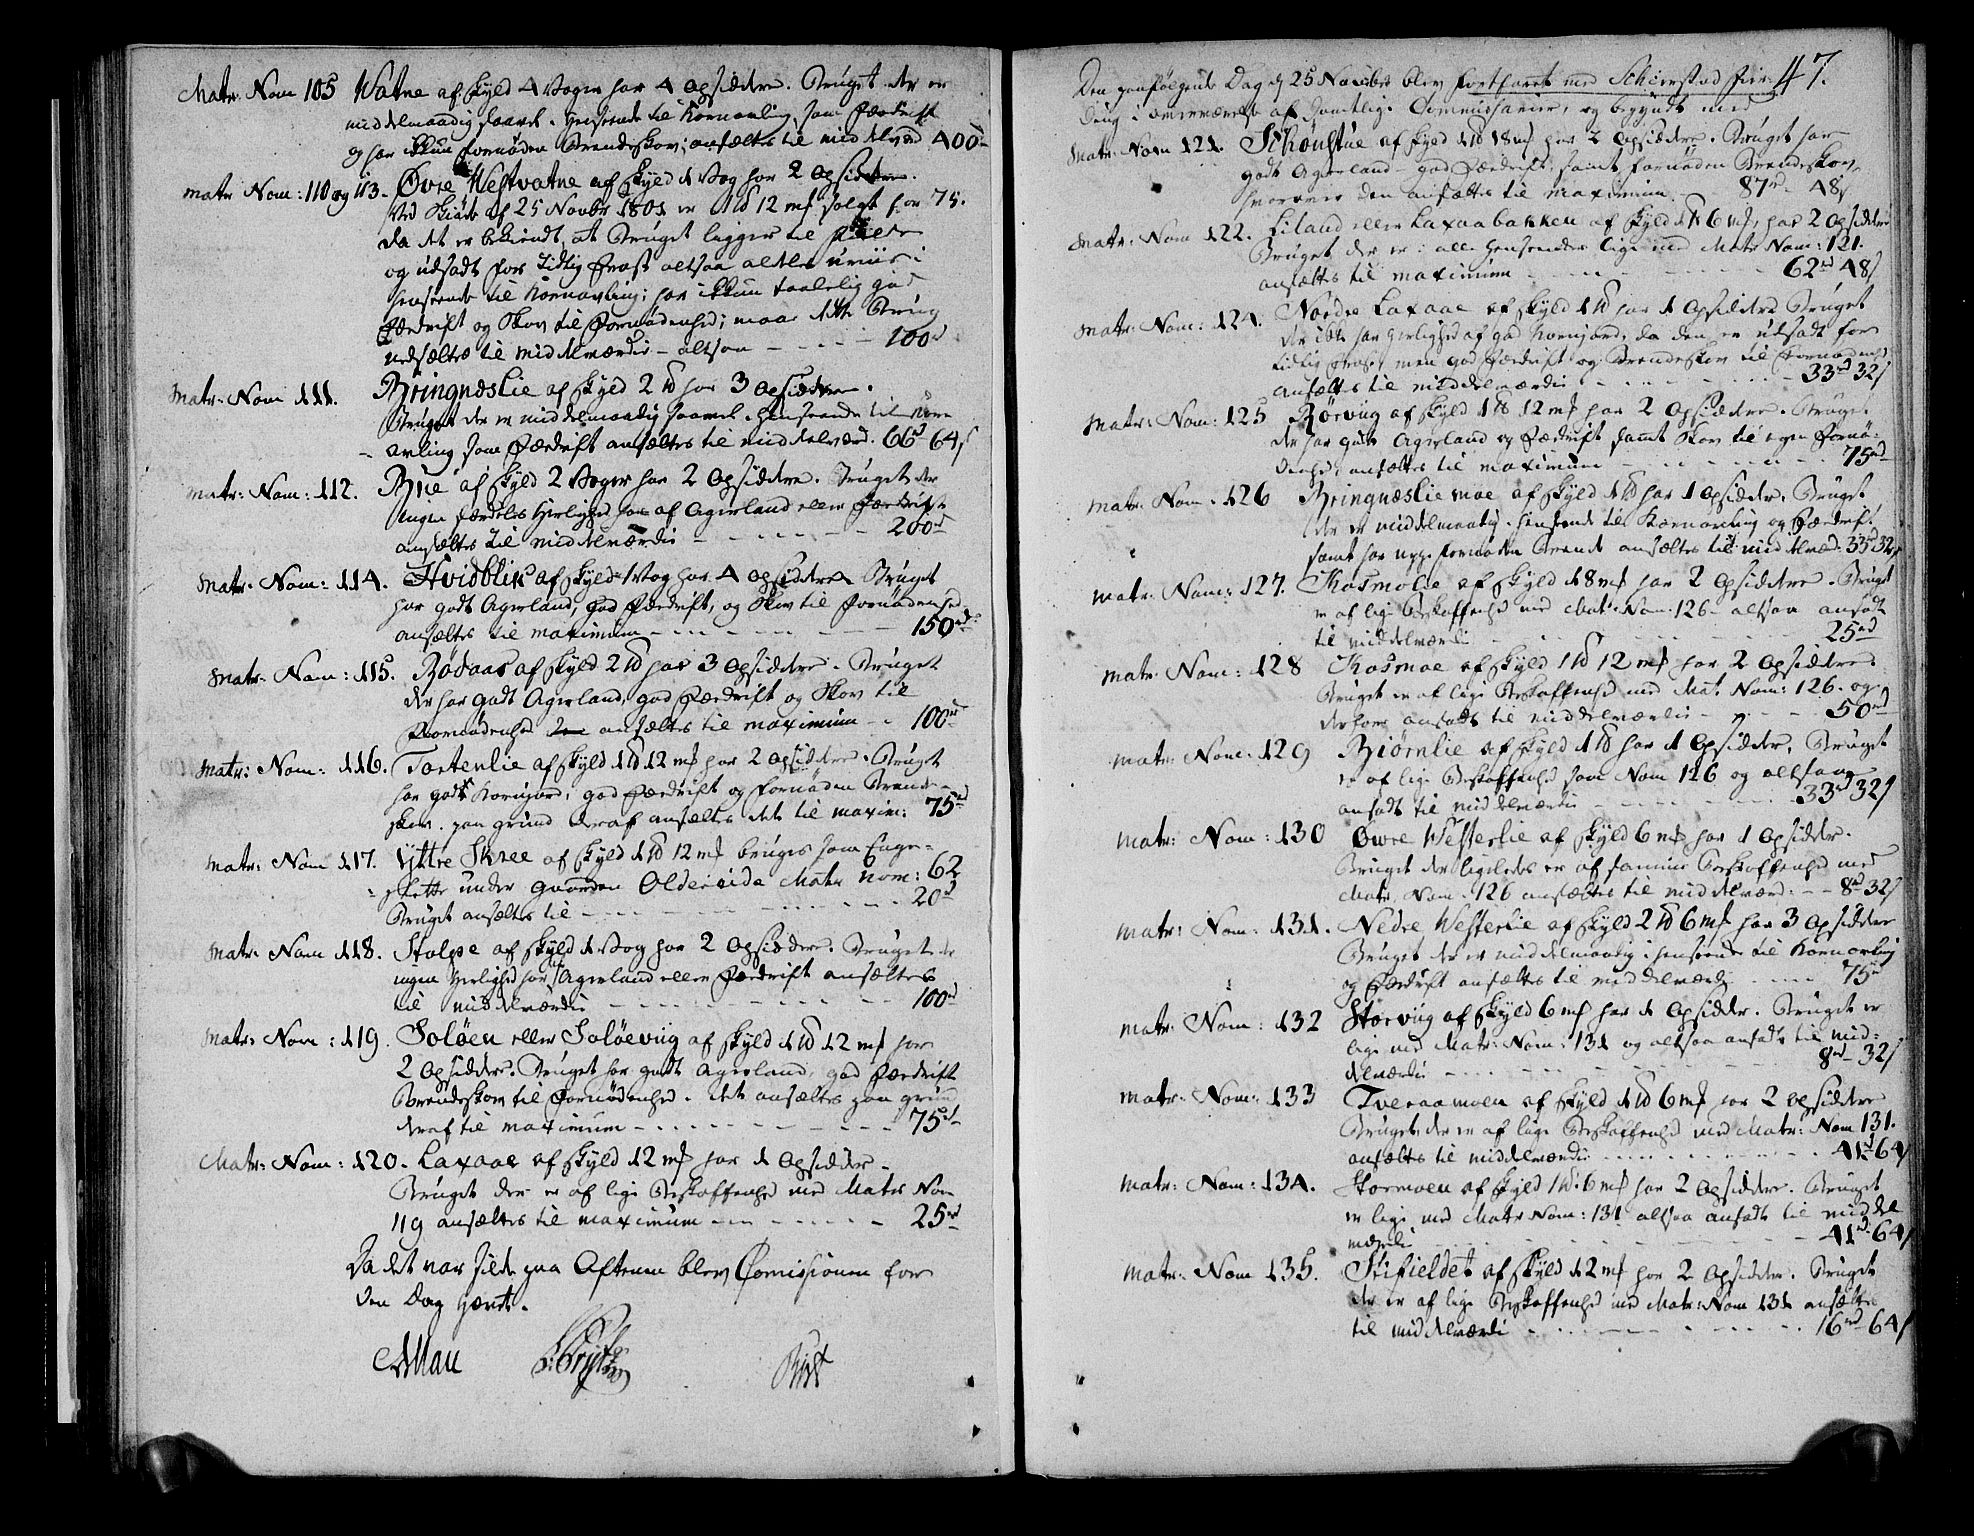 Matr: Nom 105 Watne af Skyld 4 Voger har 4 Opsiddere. Bruget der er
middelmaadig saavel i henseende til Kornavling som Fædrift
og har ikkun fornøden Brendeskov; ansættes til middelværd 400rd
Matr Nom: 110 og 113. Øvre Westvatne af Skyld 1 Vog har 2 Opsiddere.
Ved Skiøde af 25 Novbr 1801 er 1 ℔ 12 mk solgt for 75.
da det er bekiendt, at Bruget ligger til
og udsadt for tidlig Frost altsaa aldeles i
henseende til Kornavling; har ikkun taalelig god
Fædrift og Skov til Fornødenhed; maae dette Brug
nedsættes til middelværdie - altsaa - - - 100rd
Matr: Nom 111. Bringnæslie af Skyld 2 ℔ har 3 Opsiddere.
Bruget der er middelmaadig saavel i henseende til Korn
avling som Fædrift ansættes til middelværd. 66rd 64 s
Matr: Nom: 112. Brie af Skyld 2 Voger har 2 Opsiddere. Bruget der
ingen særdeles Herlighed har af Agerland eller Fædrift
ansættes til middelværdie - - - - 200rd
Matr. Nom: 114. Hvidblik af Skyld 1 Vog har 4 Opsiddere Bruget
har godt Agerland, god Fædrift, og Skov til Fornødenhed
ansættes til maximum - - - - 150rd
Matr. Nom: 115. Rødaas af Skyld 2 ℔ har 3 Opsiddere. Bruget
der har godt Agerland, god Fædrift og Skov til
Fornødenhed ansættes til maximum - - 100rd
Matr: Nom: 116. Tortenlie af Skyld 1 ℔ 12 mk har 2 Opsiddere. Bruget
har godt Kornjord, god Fædrift og fornøden Brende-
skov. paa grund deraf ansættes dette til maxim: 75rd
Matr: Nom 117. Yttre Skree af Skyld 1 ℔ 12 mk bruges som Enge-
slette under Gaarden Oldereide Matr Nom: 62
Bruget ansættes til - - - - 20rd
Matr: Nom 118. Stolpe af Skyld 1 Vog har 2 Opsiddere. Bruget der
ingen Herlighed har Agerland eller Fædrift ansættes
til middelværdie - - - - 100rd
Matr: Nom: 119. Soløen eller Soløeviig af Skyld 1 ℔ 12 mk har
2 Opsiddere. Bruget har godt Agerland, god Fædrift
Brendeskov til Fornødenhed. Det ansættes paa grund
deraf til maximum - - - - 75rd
Matr: Nom: 120. Laxaae af Skyld 12 mk har 1 Opsidder.
Bruget der er af lige Beskaffenhed med Matr Nom
119 ansættes til maximum - - - - 25rd
Da det var silde paa Aftenen blev Comisionen for
den Dag hævet.
Mau
47.
Den paafølgende Dag d 25 Novembr blev fortfaret med Schierstad Fier-
ding i overværelse af samtlige Commissarier, og begyndt med
Matr: Nom 121. Schønstue af Skyld 1 ℔ 18 mk har 2 Opsiddere. Bruget har
godt Agerland, god Fædrift, samt fornøden Brendeskov,
hvorover den ansættes til maximum - 87rd 48 s
Matr: Nom 122. Eiland eller Laxaabakken af Skyld 1 ℔ 6 mk, har 2 Opsiddere
Bruget der er i alle henseender lige med Matr Nom: 121.
ansættes til maximum - - - - 62rd 48 s
Matr: Nom: 124. Nordre Laxaae af Skyld 1 ℔ har 1 Opsiddere Bruget
der ikke har Herlighed af god Kornjord, da den er udsadt for
tidlig Frost, men god Fædrift og Brendeskov til Fornødenhed
ansættes til middelværdie - - - - 33rd 32 s
Matr: Nom: 125 Rørviig af Skyld 1 ℔ 12 mk har 2 Opsiddere. Bruget
der har godt Agerland og Fædrift samt Skov til egen Fornø-
denhed, ansættes til maximum - - - - 75rd
Matr. Nom. 126 Bringnæslie moe af Skyld 1 ℔ har 1 Opsidder. Bruget
der er middelmaadig i henseende til Kornavling og Fædrift
samt har fornøden Brende ansættes til middelværd: 33rd 32 s
Matr: Nom: 127. Kosmolie af Skyld 18 mk har 2 Opsiddere. Bruget
er af lige Beskaffenhed med Matr: Nom: 126 altsaa ansadt
til middelværdie - - - - 25rd
Matr: Nom: 128 Kosmoe af Skyld 1 ℔ 12 mk har 2 Opsiddere.
Bruget er af lige Beskaffenhed med Mat. Nom: 126. og
derfore ansadt til middelværdie - - - 50rd
Matr: Nom: 129 Biørnlie af Skyld 1 ℔ har 1 Opsidder, Bruget
er af lige Beskaffenhed som Nom 126 og altsaa
ansadt til middelværdie - - - - 33rd 32 s
Matr: Nom: 130 Øvre Westerlie af Skyld 6 mk har 1 Opsidder.
Bruget der ligeledes er af samme Beskaffenhed med
Matr. Nom. 126 ansættes til middelværd: - - 8rd 32 s
Matr: Nom: 131. Nedre Westerlie af Skyld 2 ℔ 6 mk har 3 Opsiddere
Bruget der er middelmaadig i henseende til Kornavling
og Fædrift ansættes til middelværdie - - - 75rd
Matr: Nom: 132 Storviig af Skyld 6 mk har 1 Opsidder. Bruget er
lige med Matr: Nom: 131 og altsaa ansadt til mid-
delværdie - - - - 8rd 32 s
Matr: Nom: 133 Tveraamoen af Skyld 1 ℔ 6 mk har 2 Opsiddere
Bruget der er af lige Beskaffenhed med Matr: Nom 131.
ansættes til middelværdie - - - - 41rd 64 s
Matr: Nom: 134. Stormoen af Skyld 1 ℔ 6 mk har 2 Opsiddere. Bruget
er lige med Matr Nom: 131 altsaa ansadt til middel
værdie - - - - 41rd 64 s
Matr: Nom 135. Stifieldet af Skyld 12 mk har 2 Opsiddere. Bruget
der er af lige Beskaffenhed med Matr: Nom 131 ansættes
til middelværdie - - - - 16rd 64 s